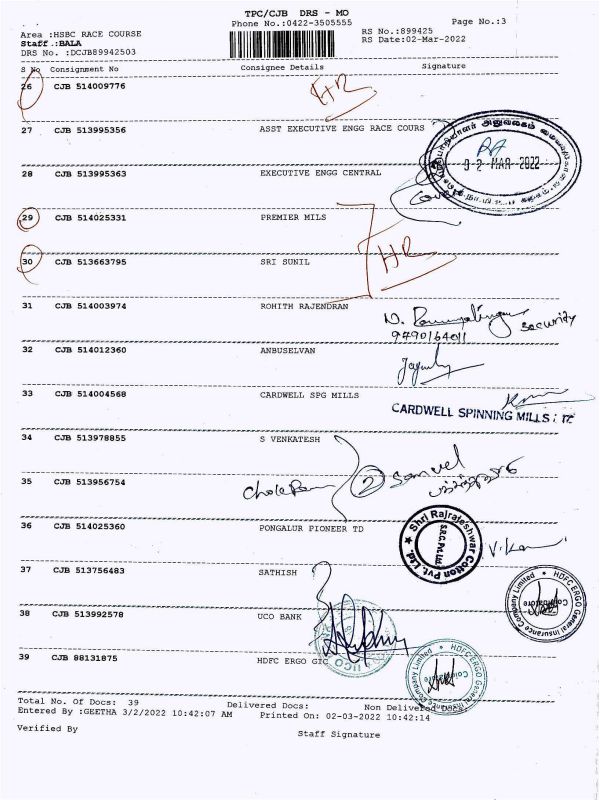 TPC/CJB DRS - MO
Phone No.:0422-3505555
Page No.:3
Area :HSBC RACE COURSE
RS No.:899425
Staff.:BALA
RS Date:02-Mar-2022
DRS No. :DCJB89942503
S No Consignment No Consignee Details Signature
26 CJB 514009776 HR
27 CJB 513995356 ASST EXECUTIVE ENGG RACE COURS
02 MAR 2022
28 CJB 513995363 EXECUTIVE ENGG CENTRAL
29 CJB 514025331 PREMIER MILS
30 CJB 513663795 SRI SUNIL HR
31 CJB 514003974 ROHITH RAJENDRAN
security
9490164011
32 CJB 514012360 ANBUSELVAN
33 CJB 514004568 CARDWELL SPG MILLS
CARDWELL SPINNING MILLS
34 CJB 513978855 S VENKATESH
35 CJB 513956754 2 Samuel
36 CJB 514025360 PONGALUR PIONEER TD
Shri Rajrajeshwar Cotton Pvt. Ltd.
S.R.C. Pvt. Ltd.
37 CJB 513756483 SATHISH
HDFC ERGO General Insurance Company Limited
Coimbatore
38 CJB 513992578 UCO BANK
UCO
39 CJB 88131875 HDFC ERGO GIC
HDFC ERGO General Insurance Company Limited
Coimbatore
Total No. Of Docs: 39 Delivered Docs: Non Delivered Docs:
Entered By :GEETHA 3/2/2022 10:42:07 AM Printed On: 02-03-2022 10:42:14
Verified By Staff Signature